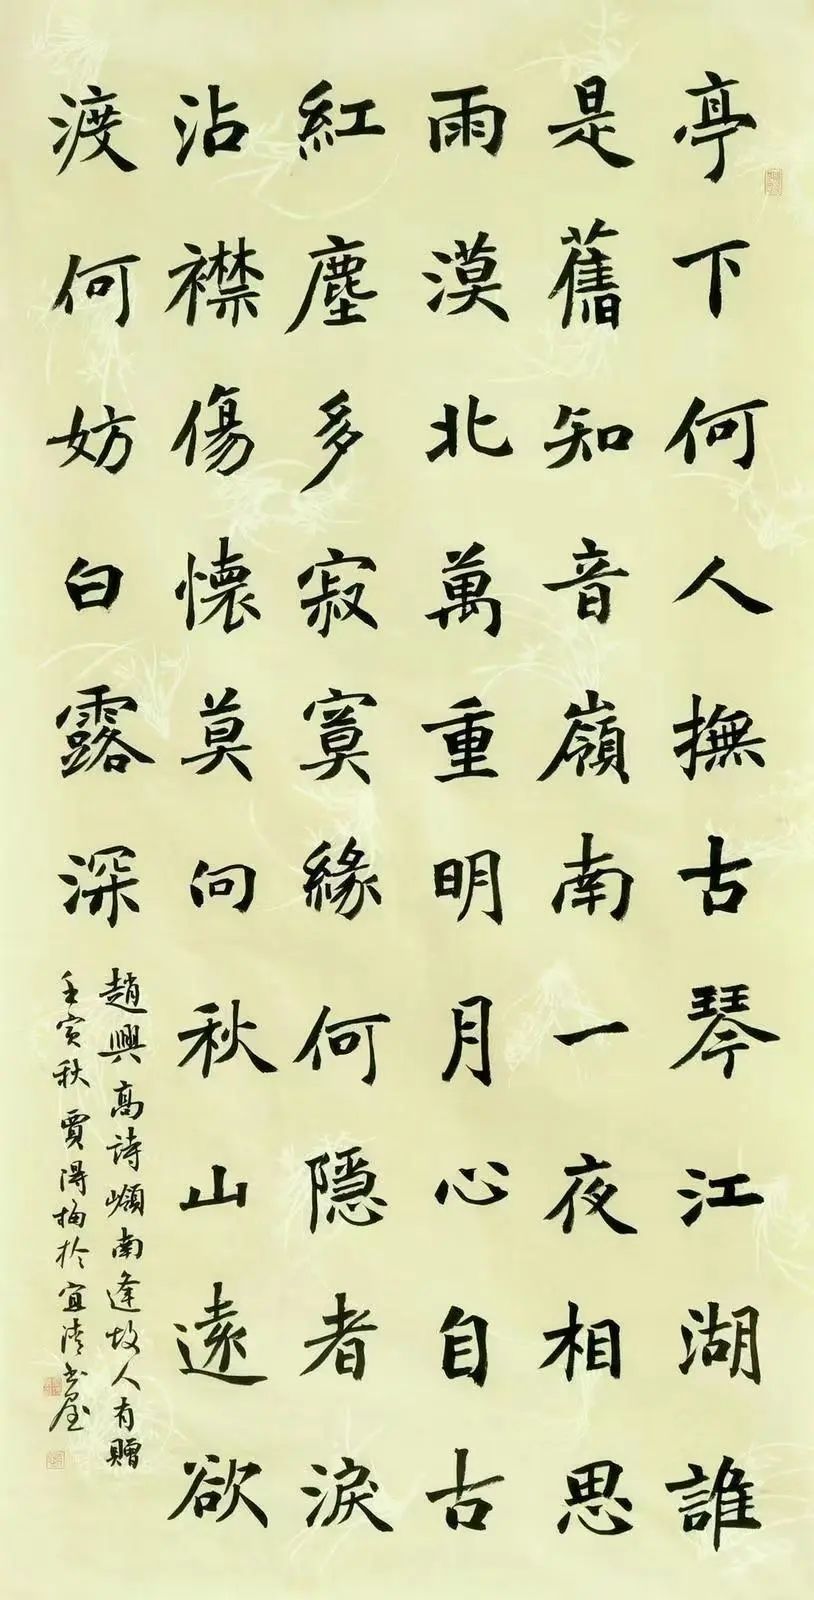 亭下何人撫古琴江湖誰
是舊知音嶺南一夜相思
雨漠北萬重明月心自古
紅塵多寂寞緣何隱者淚
沾襟傷懷莫問秋山遠欲
渡何妨白露深
趙興高詩嶺南逢故人有贈
壬寅秋賈得梅於宜清書屋